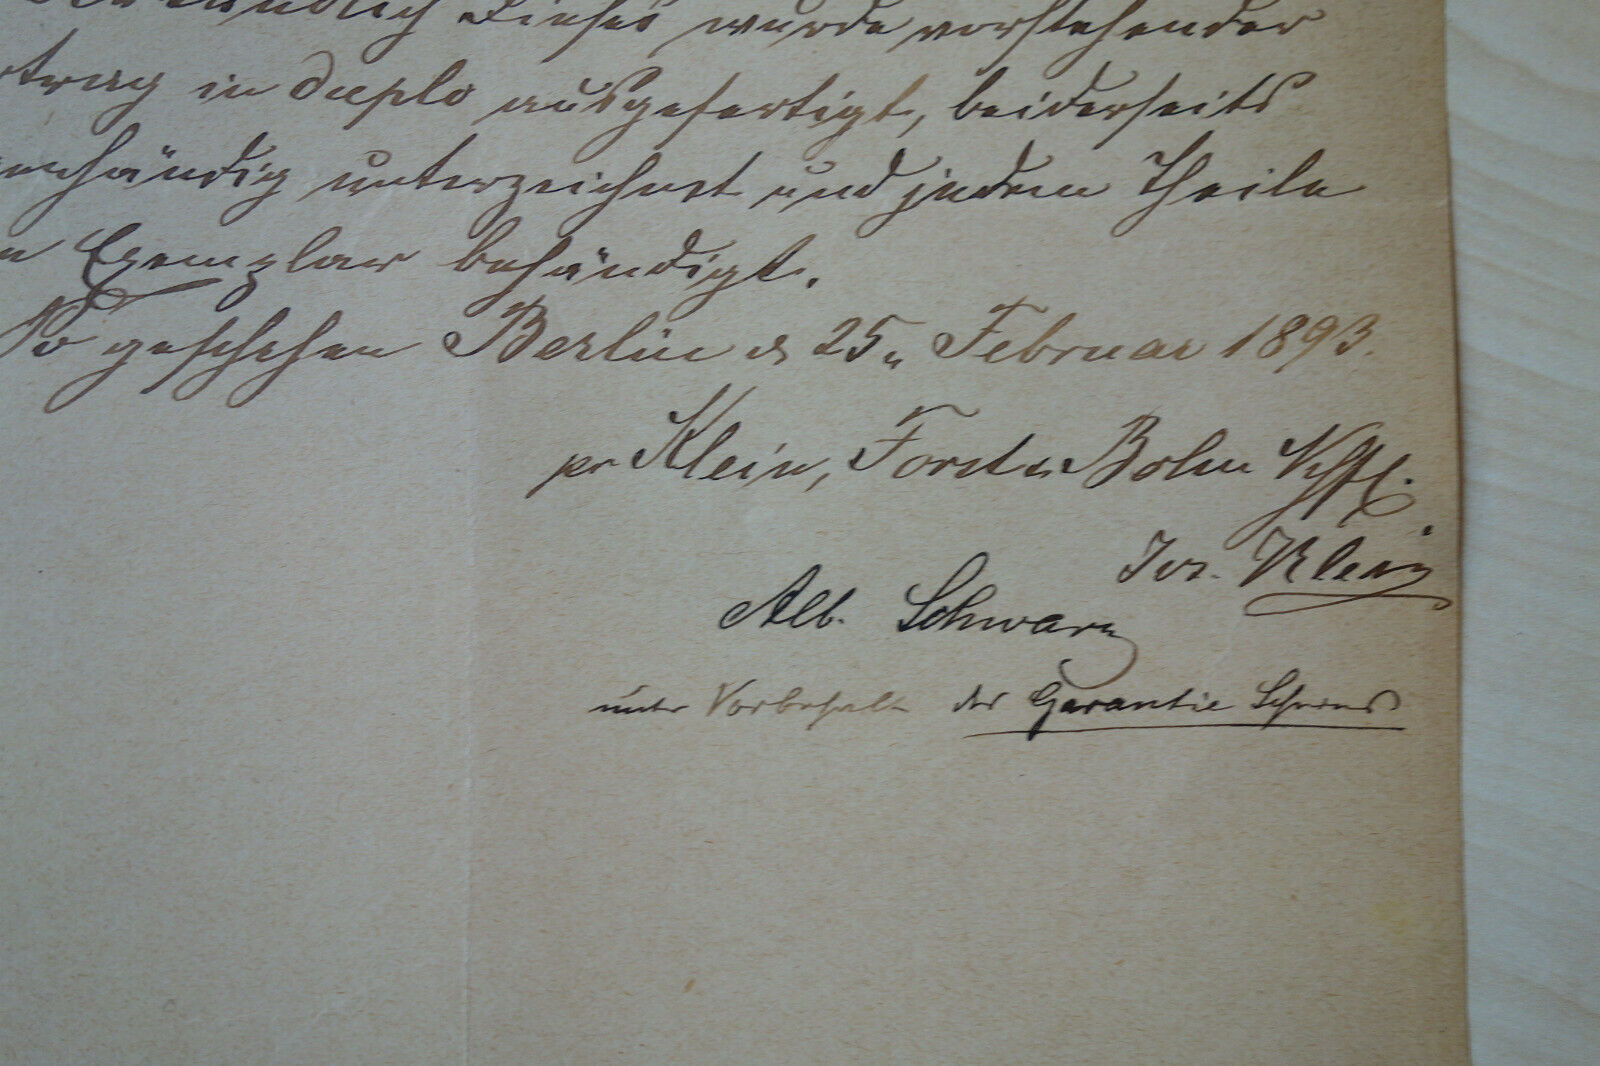 Urkundlich Dieses wurde vorstehender
rtrag in duplo ausgefertigt, beiderseits
enhändig unterzeichnet und jedem Theile
n Exemplar behändigt.
So geschehen Berlin d 25. Februar 1893.
pr Klein, Forst & Bohn Nchfl.
Jos. Klein
Alb. Schwarz
unter Vorbehalt des Garantie Scheines